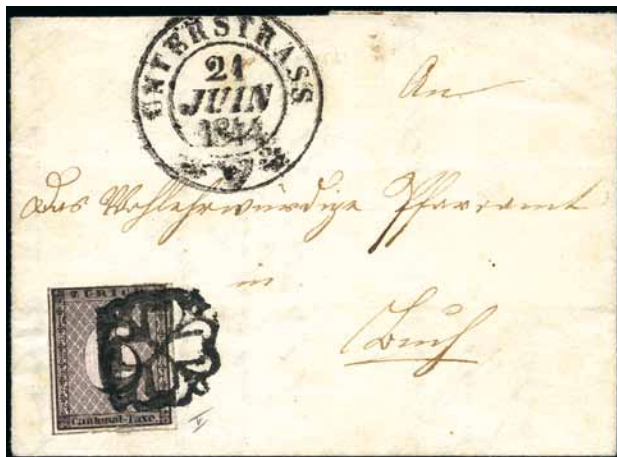 UNTERSTRASS
21
JUIN
1844
An
das Wohlehrwürdige Pfarramt
in
Buch
ZÜRICH
6
Cantonal-Taxe.